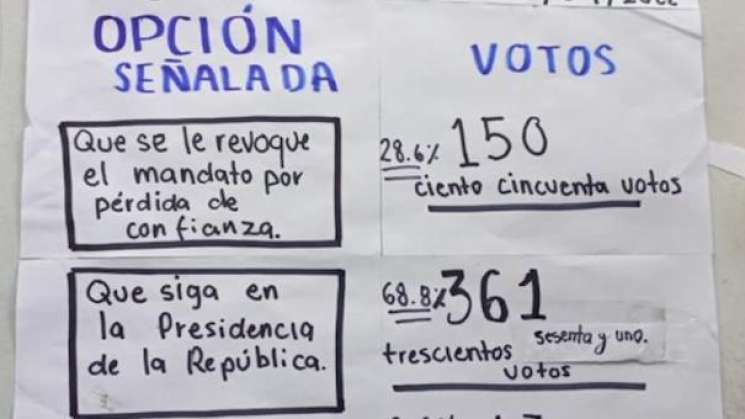 OPCIÓN
SEÑALADA
VOTOS
Que se le revoque
el mandato por
pérdida de
confianza.
28.6% 150
ciento cincuenta votos
Que siga en
la Presidencia
de la República.
68.8% 361
trescientos sesenta y uno.
votos